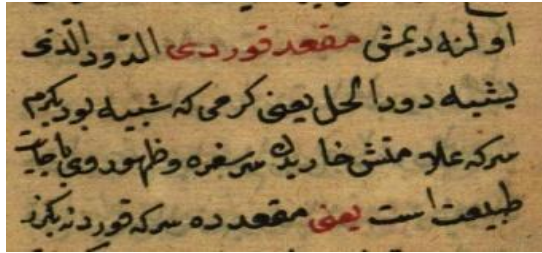 اولنه دیمش مقعد قوردی الدود الذی
یشبه دود الخل یعنی کرمی که شبیه بود بکرم
سرکه علامتش خاریدن سر سفره وظهور وی باجابت
طبیعت است یعنی مقعدده سرکه قوردنه بکزر